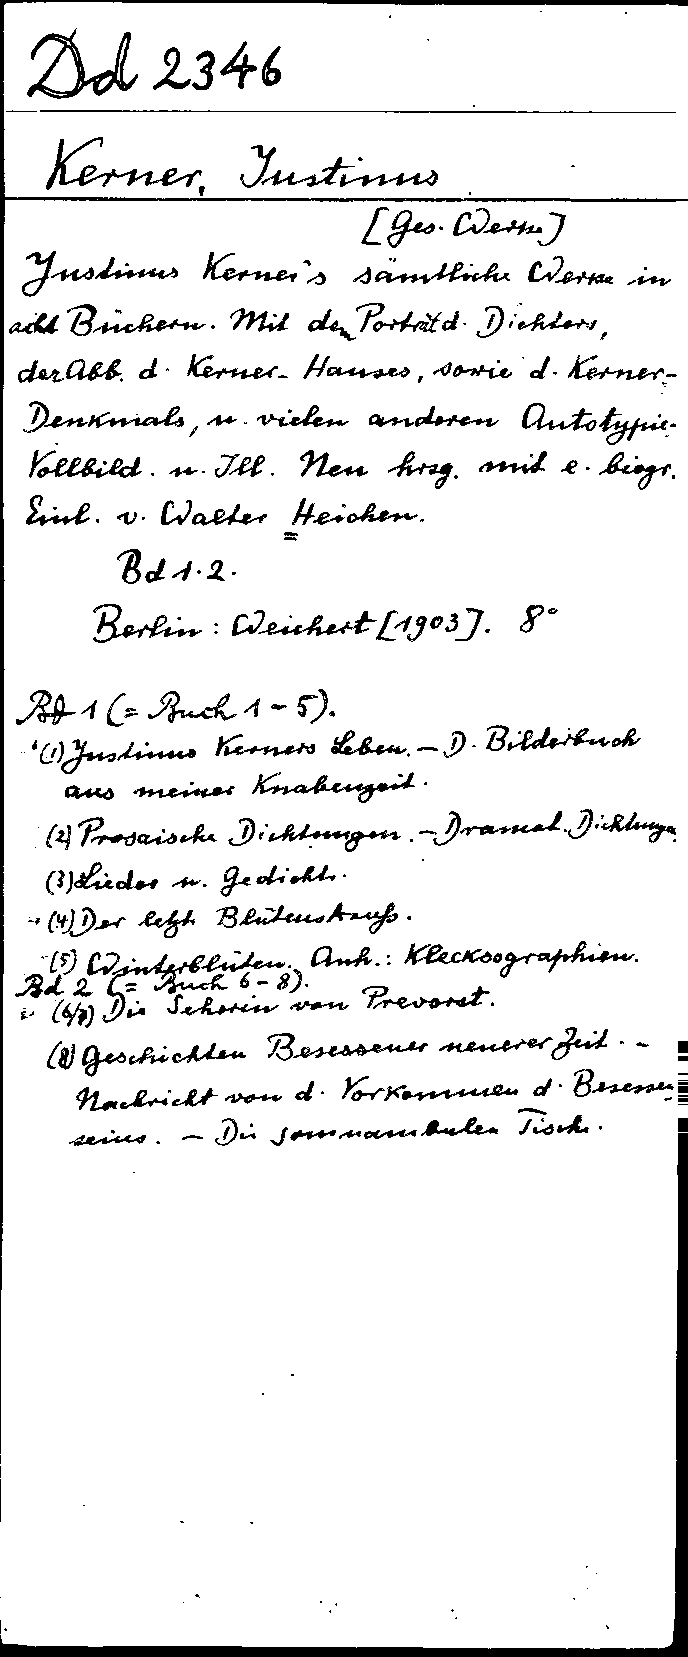 Dd 2346
Kerner, Justinus
[Ges. Werke]
Justinus Kerner's sämtliche Werke in
acht Büchern. Mit dem Porträt d. Dichters,
der Abb. d. Kerner-Hauses, sowie d. Kerner-
Denkmals, u. vielen anderen Autotypie-
Vollbild. u. Ill. Neu hrsg. mit e. biogr.
Einl. v. Walter Heichen.
Bd 1.2.
Berlin: Weichert [1903]. 8°
Bd 1 (= Buch 1-5).
(1) Justinus Kerners Leben. - D. Bilderbuch
aus meiner Knabenzeit.
(2) Prosaische Dichtungen. - Dramat. Dichtungen.
(3) Lieder u. Gedichte.
(4) Der letzte Blütenstrauß.
(5) Winterblüten. Anh.: Klecksographien.
Bd 2 (= Buch 6-8).
(6/7) Die Seherin von Prevorst.
(8) Geschichten Besessener neuerer Zeit. -
Nachricht von d. Vorkommen d. Besessen-
seins. - Die somnambulen Tische.